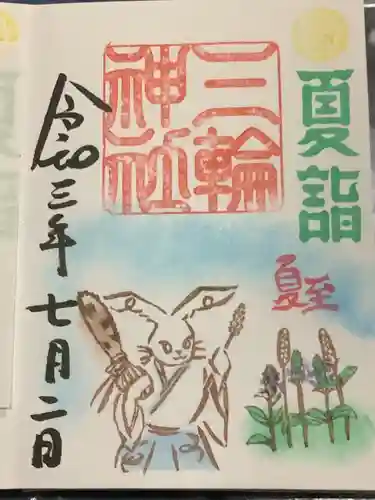 夏詣
三輪
神社
夏至
令和三年七月二日